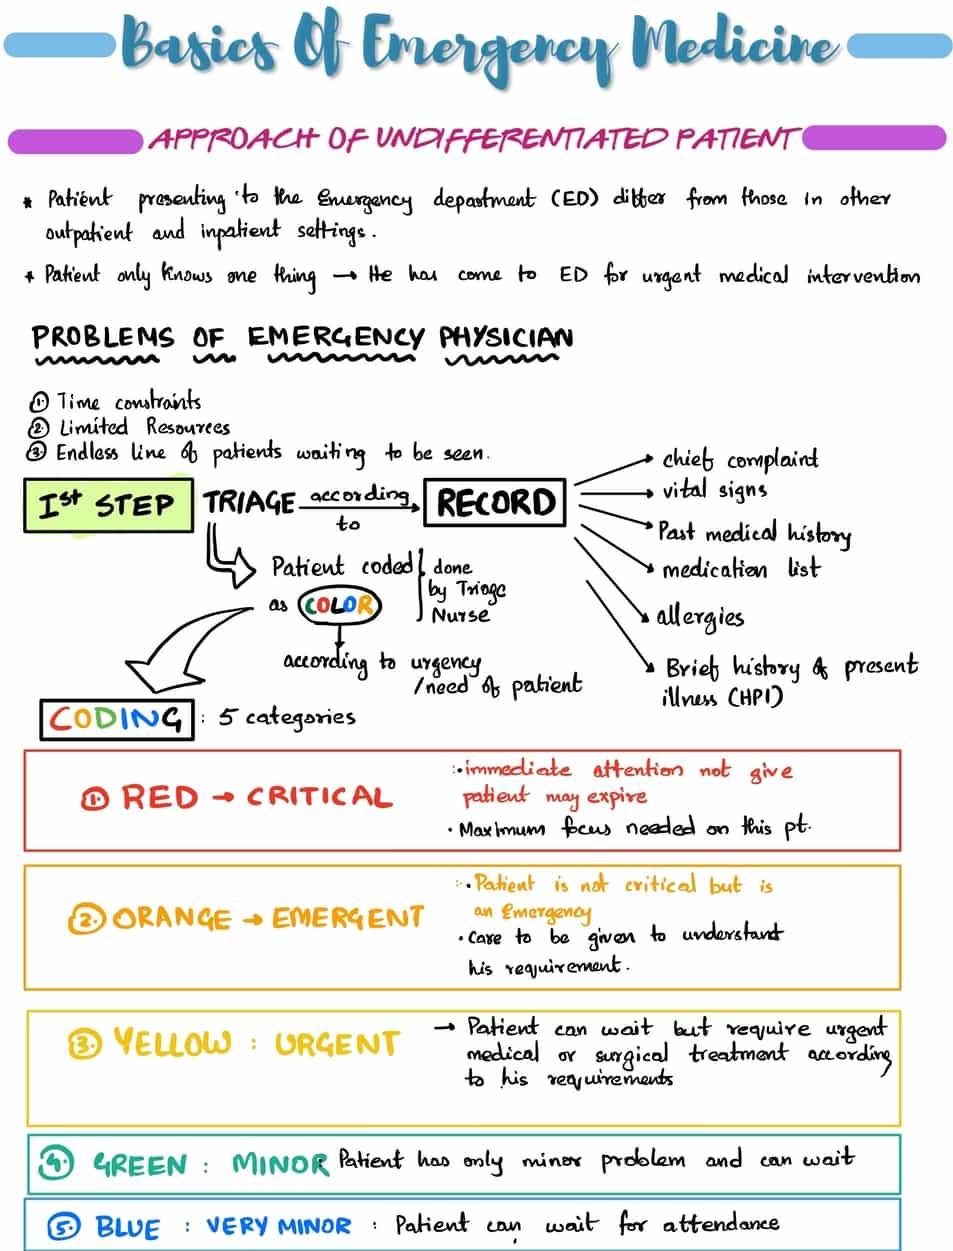 Basics Of Emergency Medicine
APPROACH OF UNDIFFERENTIATED PATIENT
* Patient presenting to the Emergency department (ED) differ from those in other
outpatient and inpatient settings.
* Patient only knows one thing → He has come to ED for urgent medical intervention
PROBLEMS OF EMERGENCY PHYSICIAN
① Time constraints
② Limited Resources
③ Endless line of patients waiting to be seen.
Ist STEP TRIAGE according to → RECORD
chief complaint
vital signs
Past medical history
medication list
allergies
Brief history of present
illness (HPI)
Patient coded
as COLOR
done
by Triage
Nurse
according to urgency
/need of patient
CODING : 5 categories
① RED → CRITICAL
:• immediate attention not give
patient may expire
• Maximum focus needed on this pt.
② ORANGE → EMERGENT
:• Patient is not critical but is
an Emergency
• Care to be given to understand
his requirement.
③ YELLOW : URGENT
→ Patient can wait but require urgent
medical or surgical treatment according
to his requirements
④ GREEN : MINOR : Patient has only minor problem and can wait
⑤ BLUE : VERY MINOR : Patient can wait for attendance